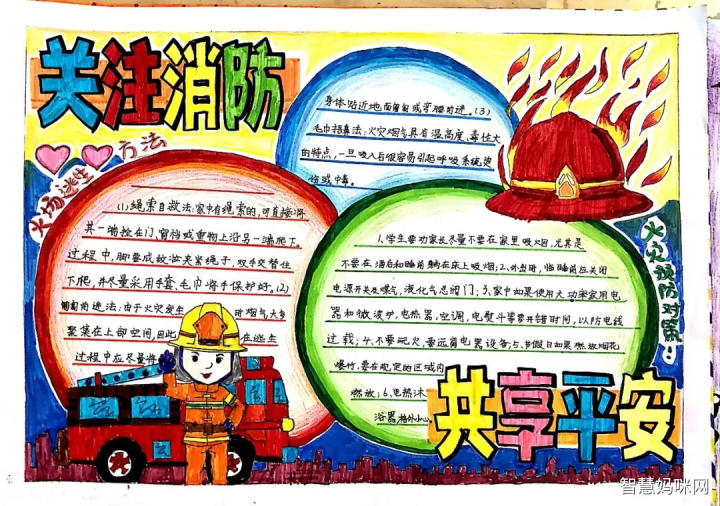 关注消防
火场逃生
方法
(1)绳索自救法:家中有绳索的,可直接将
其一端拴在门、窗档或重物上沿另一端爬下。
过程中,脚要成绞状夹紧绳子,双手交替往
下爬,并尽量采用手套、毛巾将手保护好。(2)
匍匐前进法:由于火灾发生时烟气大多
聚集在上部空间,因此在逃生
过程中应尽量将
身体贴近地面匍匐或弯腰前进。(3)
毛巾捂鼻法:火灾烟气具有温高度、毒性大
的特点,一旦吸入后很容易引起呼吸系统烫
伤或中毒。
火灾预防对策:
1.学生要劝家长尽量不要在家里吸烟,尤其是
不要在酒后和睡前躺在床上吸烟;2.外出时,临睡前应关闭
电源开关及煤气,液化气总阀门;3.家中如果使用大功率家用电
器和微波炉,电热器,空调,电熨斗等要开错时间,以防电线
过载;4.不要玩火,要远离电器设备;5.节假日如果燃放烟花
爆竹,要在规定的区域内
燃放;6.电热沐
浴器,格外小心。
共享平安
智慧妈咪网